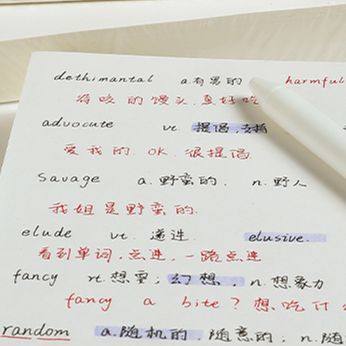 dethimantal a.有害的 harmful
有咬的馒头真好吃
advocute vt. 提倡,支持
爱我的.OK.很提倡
Savage a.野蛮的. n.野人
我姐是野蛮的.
elude vt. 逃避. elusive.
看到单词,点进,一路点进
fancy vt.想要; 幻想, n.想象力
fancy a bite? 想吃什
random a.随机的,随意的; n.随